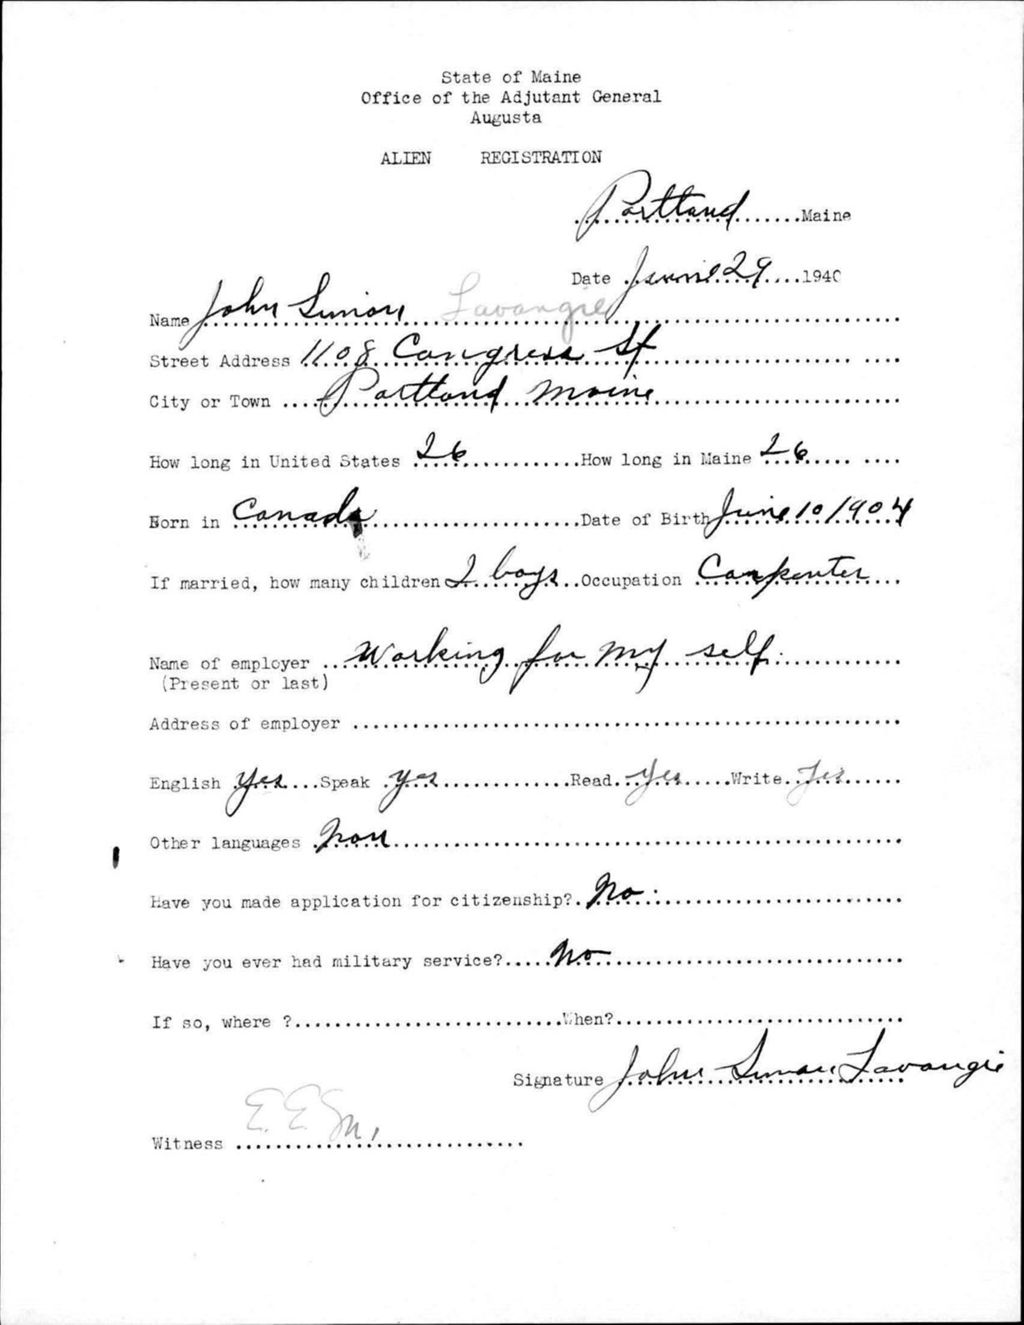 State of Maine
Office of the Adjutant General
Augusta
ALIEN REGISTRATION
Portland.......Maine
Date June 29....1940
Name John Simon Lavangie
Street Address 1108 Congress St
City or Town Portland Maine
How long in United States 26 How long in Maine 26
Born in Canada Date of Birth June 10 1904
If married, how many children 2 boys Occupation Carpenter
Name of employer Working for my self.
(Present or last)
Address of employer
English Yes Speak yes Read Yes Write Yes
Other languages Non
Have you made application for citizenship? No.
Have you ever had military service? No
If so, where ? When?
Signature John Simon Lavangie
Witness E. E. M.